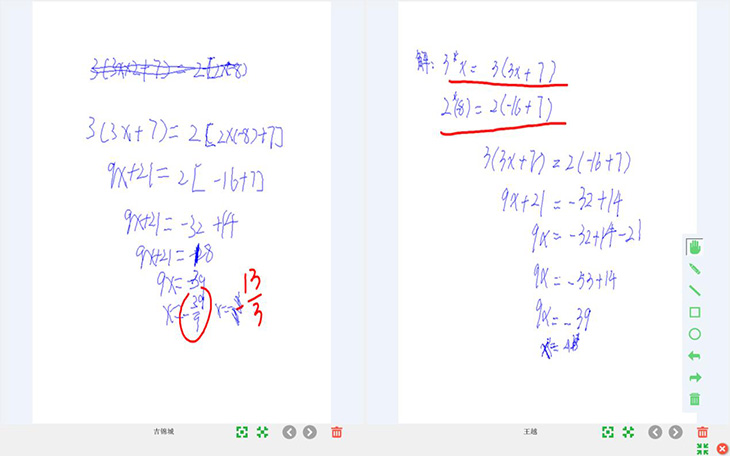 3(3x+7)=2[2×(-8)+7]
9x+21=2[-16+7]
9x+21=-32+14
9x+21=-18
9x=-39
x=-39/9 x=-13/3
吉锦城
解：3*x=3(3x+7)
2*(-8)=2(-16+7)
3(3x+7)=2(-16+7)
9x+21=-32+14
9x=-32+14-21
9x=-53+14
9x=-39
王越